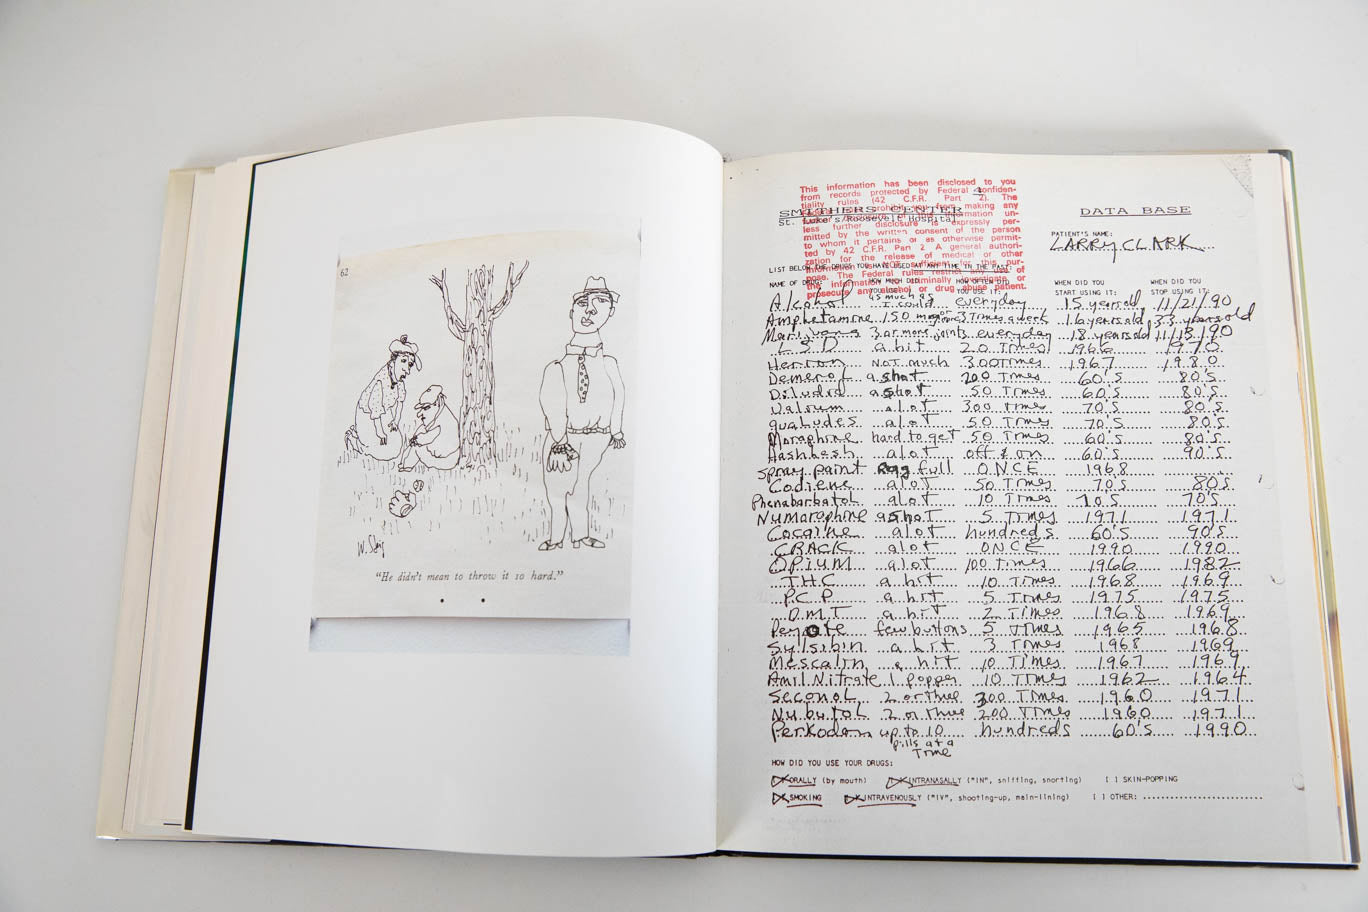 62
W. Steig
"He didn't mean to throw it so hard."
This information has been disclosed to you
from records protected by Federal confiden-
tiality rules (42 C.F.R. Part 2). The
SMITHERS CENTER
St. Luke's/Roosevelt Hospital
less further disclosure is expressly per-
mitted by the written consent of the person
to whom it pertains or as otherwise permit-
ted by 42 C.F.R. Part 2. A general authori-
zation for the release of medical or other
information is NOT sufficient for this pur-
pose. The Federal rules restrict any use of
the information to criminally investigate or
prosecute any alcohol or drug abuse patient.
DATA BASE
PATIENT'S NAME:
LARRY CLARK
LIST BELOW THE DRUGS YOU HAVE USED AT ANY TIME IN THE PAST:
NAME OF DRUG: HOW MUCH DID YOU USE: HOW OFTEN DID YOU USE IT: WHEN DID YOU START USING IT: WHEN DID YOU STOP USING IT:
Alcohol as much as I could everyday 15 years old 11/21/90
Amphetamine 150 3 times a week 16 years old 33 years old
Marijuana 3 or more joints everyday 18 years old 11/13/90
LSD a hit 20 Times 1966 1970
Herron not much 300 Times 1967 1980
Demerol a shot 200 Times 60's 80's
Diludid a shot 50 Times 60's 80's
Valium alot 300 Times 70's 80's
qualudes alot 50 Times 70's 80's
Moraphine hard to get 50 Times 60's 80's
Hashhesh alot off & on 60's 90's
spray paint rag full ONCE 1968
Codiene alot 50 Times 70's 80's
Phenabarbatol alot 10 Times 70's 70's
Numoraphine a shot 5 Times 1971 1971
Cocaine alot hundreds 60's 90's
CRACK alot ONCE 1990 1990
OPIUM alot 100 times 1966 1982
THC a hit 10 Times 1968 1969
P.C.P a hit 5 Times 1975 1975
D.M.T a hit 2 Times 1968 1969
Peyote few buttons 5 Times 1965 1968
Syllsibin a hit 3 Times 1968 1969
Mescalin a hit 10 Times 1967 1969
Amil Nitrate 1 popper 10 Times 1962 1964
Seconol 2 or three 300 Times 1960 1971
Nubutol 2 or three 200 Times 1960 1971
Perkodan up to 10 pills at a Time hundreds 60's 1990
HOW DID YOU USE YOUR DRUGS:
ORALLY (by mouth) INTRANASALLY ("IN", sniffing, snorting) [ ] SKIN-POPPING
SMOKING INTRAVENOUSLY ("IV", shooting-up, main-lining) [ ] OTHER: